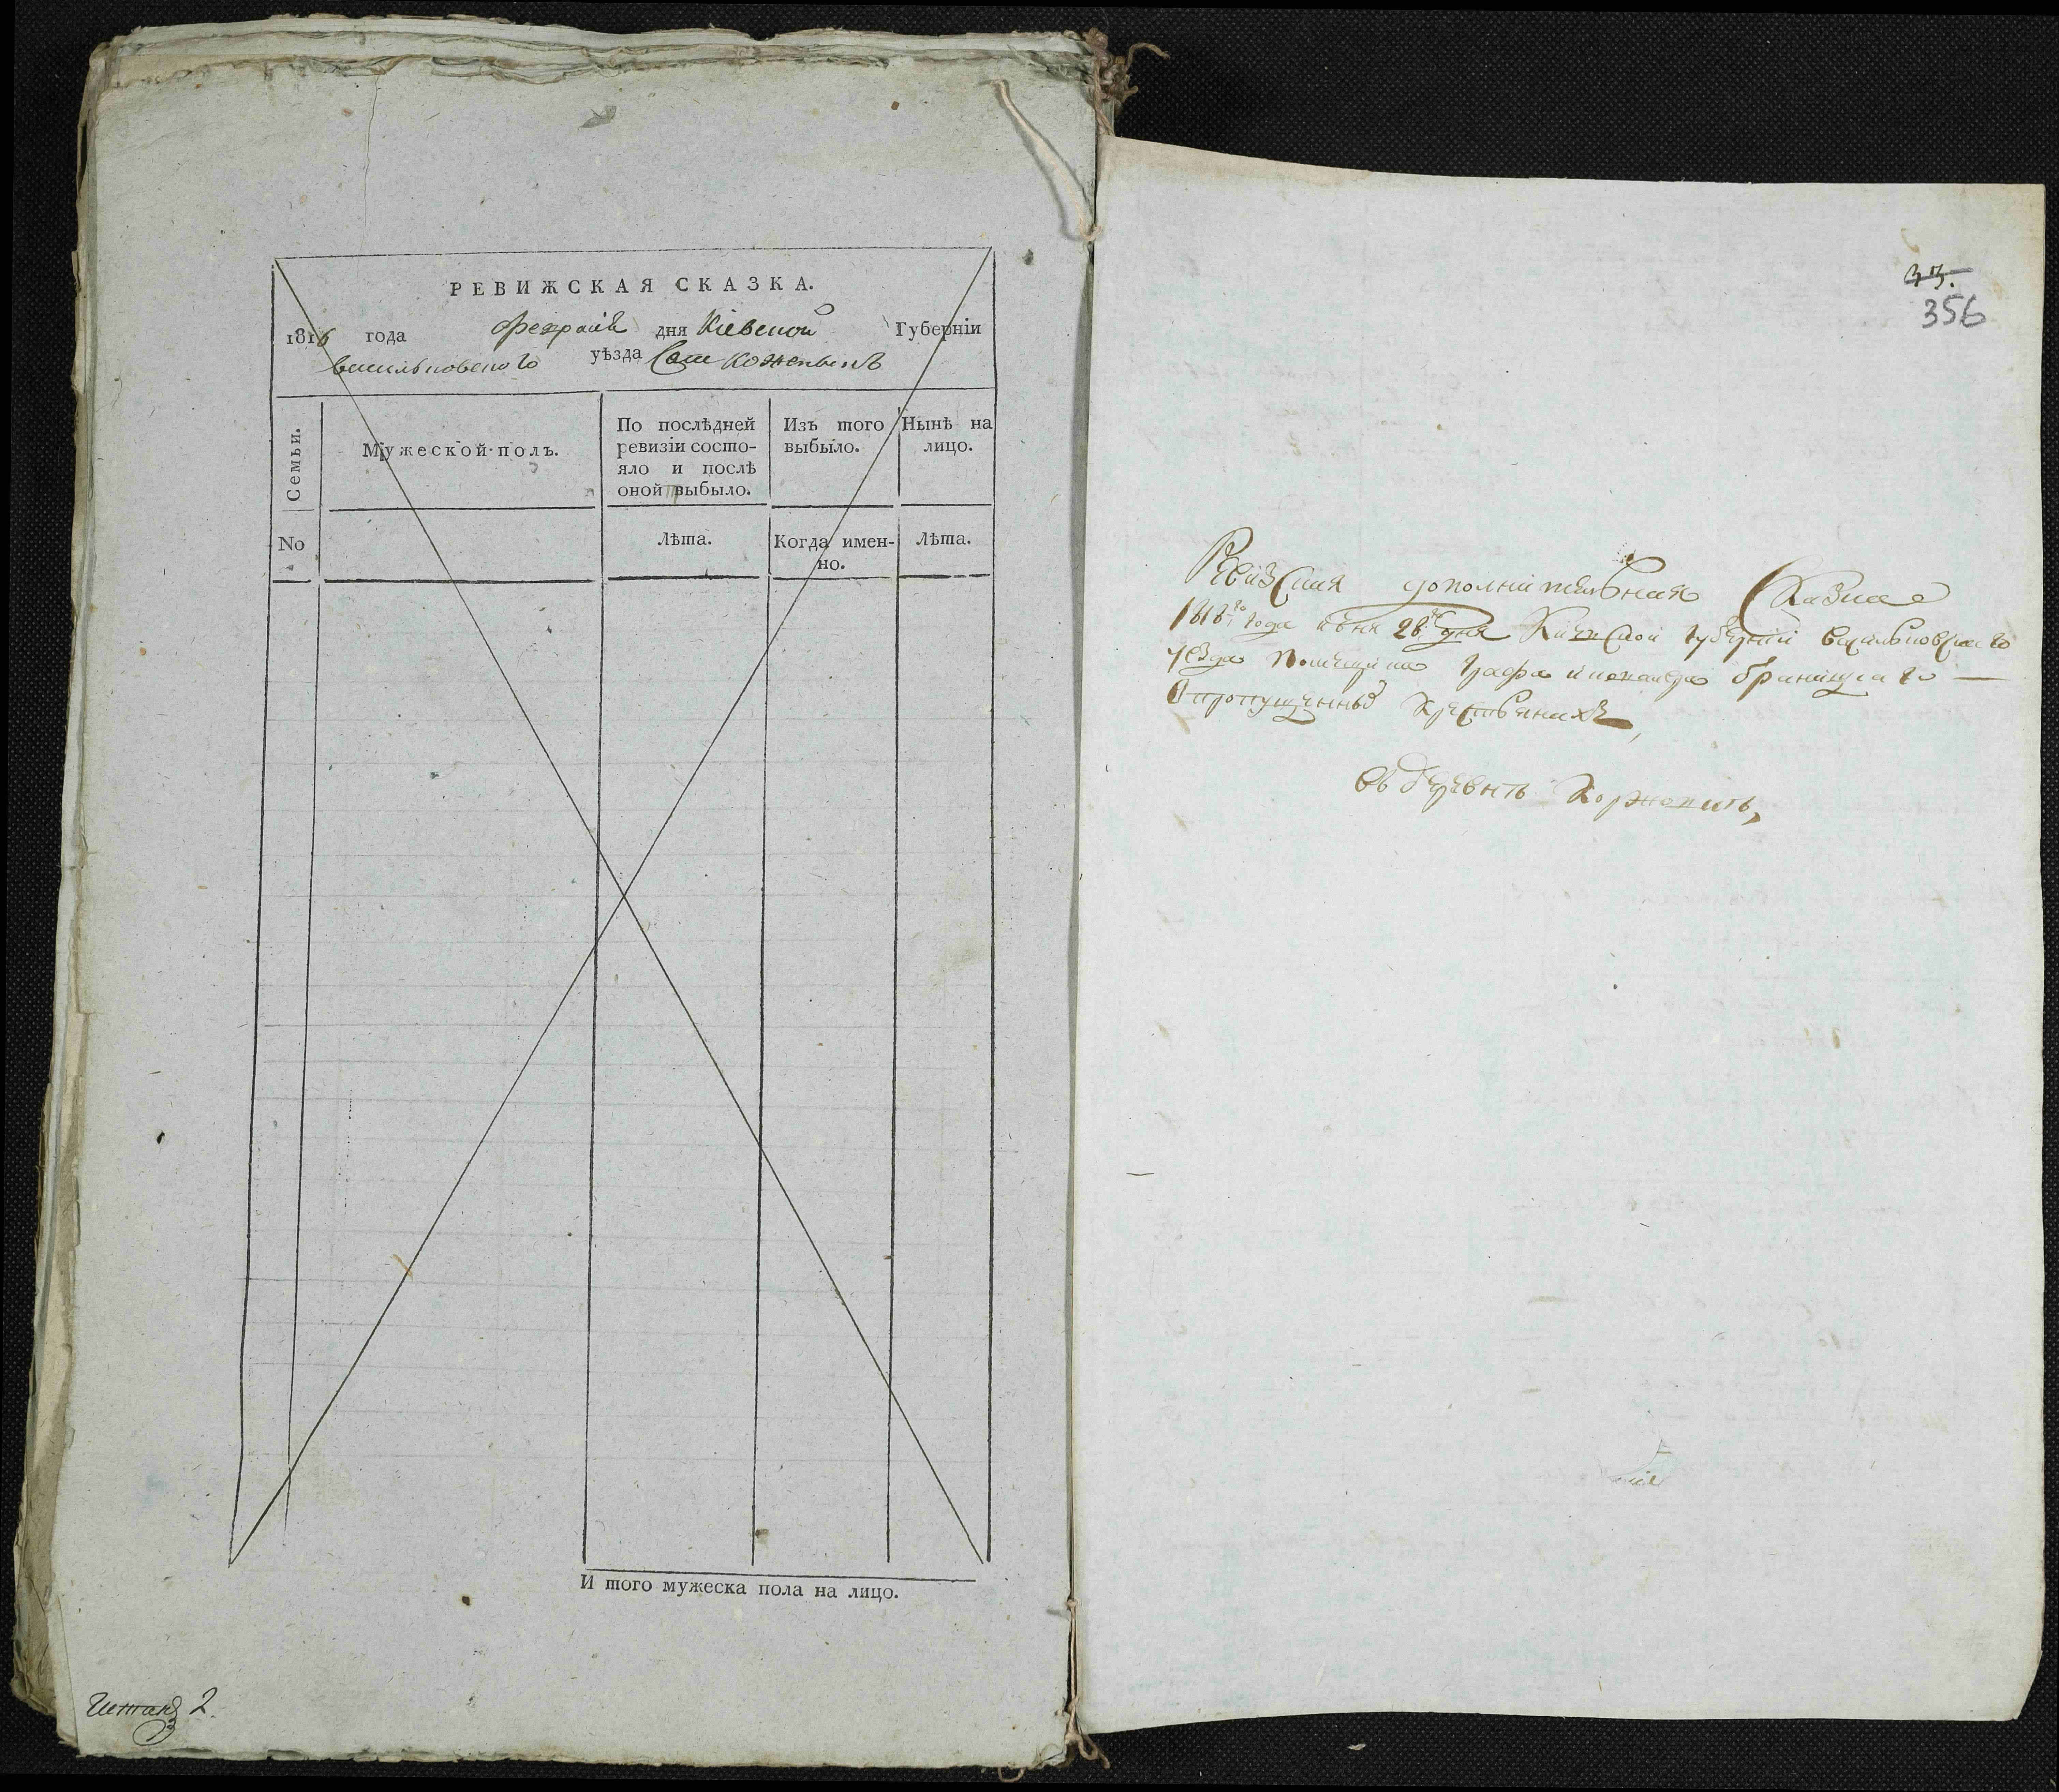 РЕВИЖСКАЯ СКАЗКА.
1816 года февраля дня Кіевской Губерніи
васильковского уѣзда
Семьи.
Мужеской полъ.
По послѣдней
ревизіи состо-
яло и послѣ
оной выбыло.
Изъ того
выбыло.
Нынѣ на
лицо.
No
Лѣта.
Когда имен-
но.
Лѣта.
И того мужеска пола на лицо.
2.
33.
356
Ревизская дополнительная Сказка
года 28 дня Киевской губернии васильковского
уезда помещика графа Браницкаго
О пропущенных крестьянахъ
въ деревнѣ